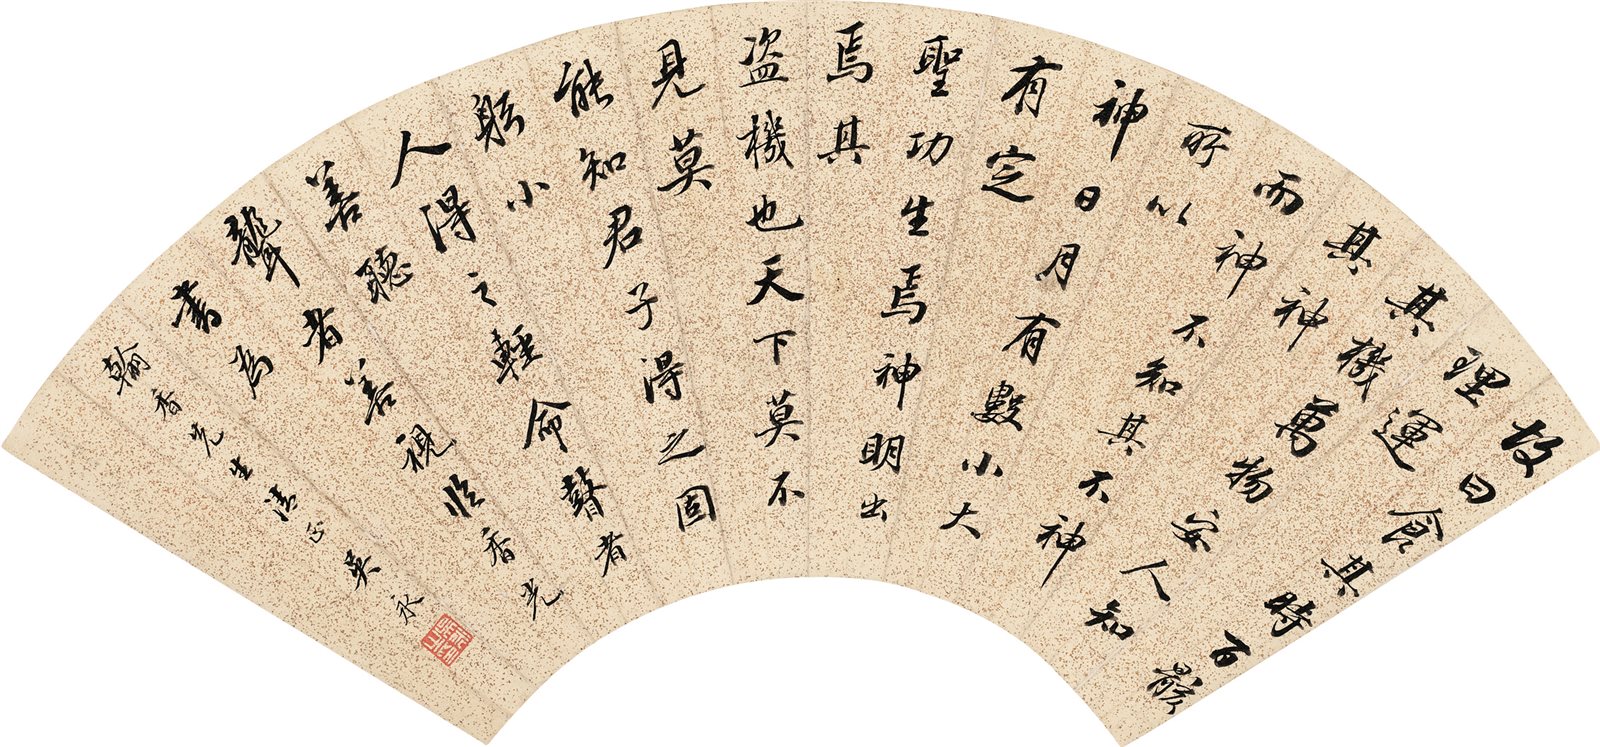 故曰食其時百骸
理運
其機萬物安人知
其神
而神不知其不神
所以
神日月有數小大
有定
聖功生焉神明出
焉其
盜機也天下莫不
見莫
能知君子得之固
躬小
人得之輕命瞽者
善聽
聾者善視臨香光
書為
翰香先生清正吳永